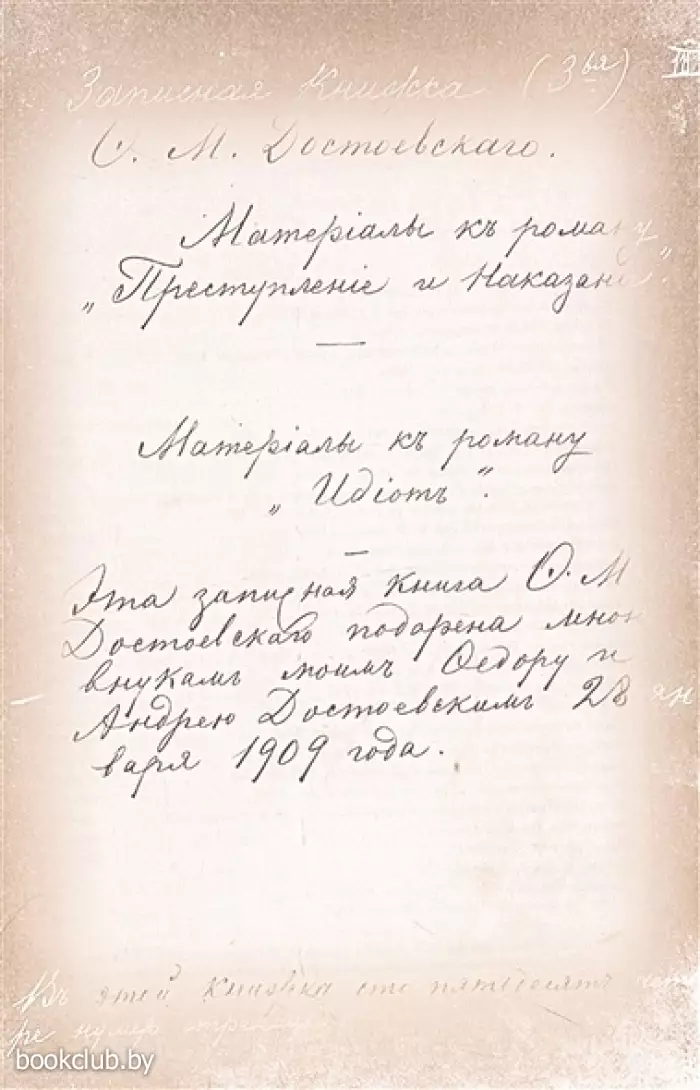 Записная Книжка (3ья)
Ѳ. М. Достоевскаго.
Матеріалы къ роману
„Преступленіе и Наказані".
Матеріалы къ роману
„Идіотъ".
Эта записная книга Ѳ. М
Достоевскаго подарена мною
внукамъ моимъ Ѳедору и
Андрею Достоевскимъ 28 ян
варя 1909 года.
Въ этой Книжке сто пятьдесятъ четы
ре нумер
bookclub.by